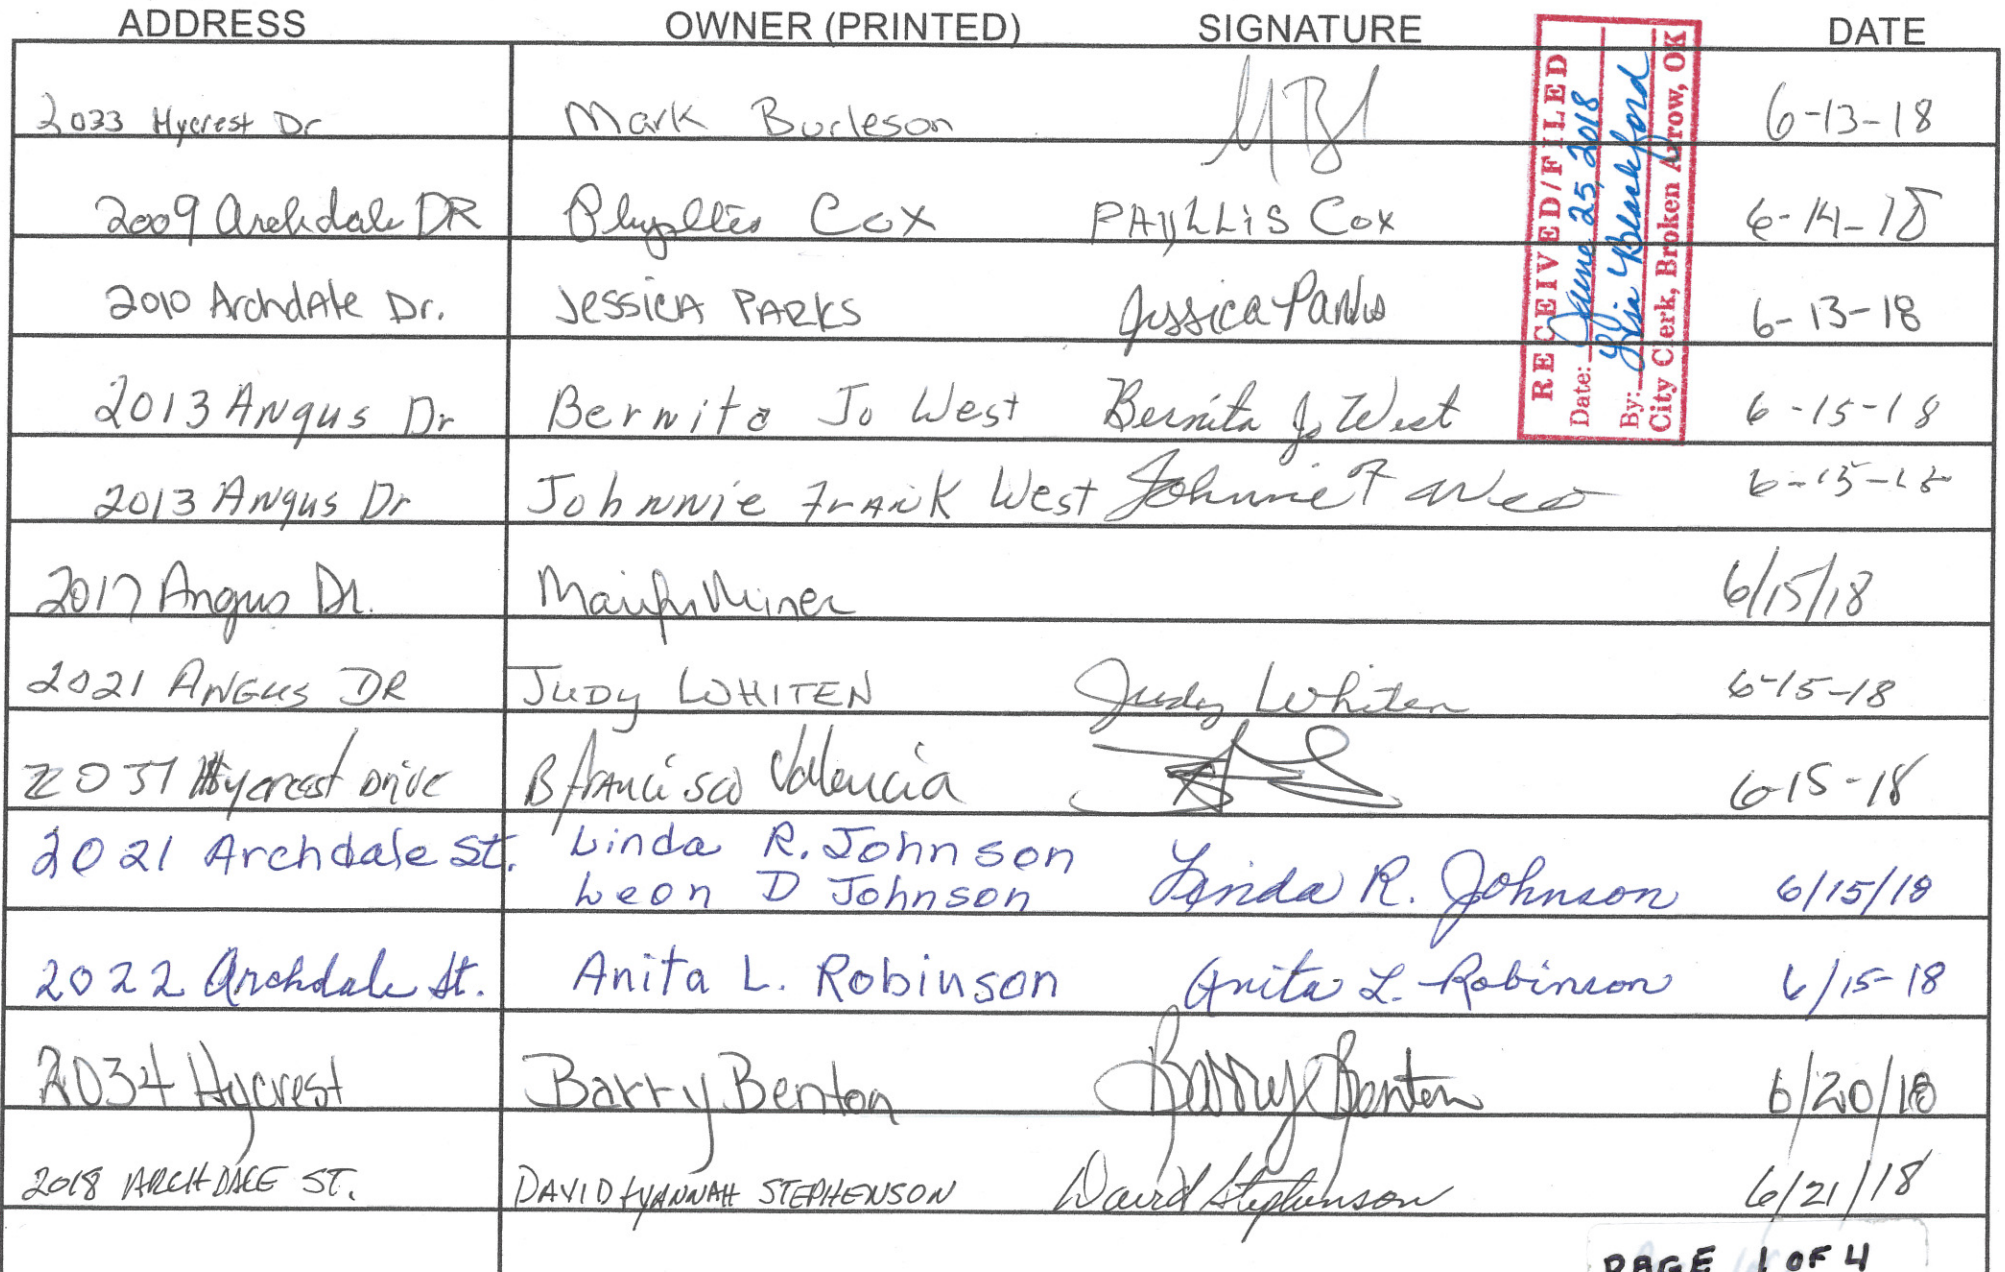 ADDRESS OWNER (PRINTED) SIGNATURE DATE
2033 Hycrest Dr Mark Burleson MB 6-13-18
2009 Archdale DR Phyllis Cox PHYLLIS Cox 6-14-18
2010 Archdale Dr. JESSICA PARKS Jessica Parks 6-13-18
2013 Angus Dr Bernita Jo West Bernita Jo West 6-15-18
2013 Angus Dr Johnnie Frank West Johnnie F West 6-15-18
2017 Angus Dr. Miner 6/15/18
2021 ANGUS DR JUDY WHITEN Judy Whiten 6-15-18
2037 Hycrest Drive B Francisco Valencia 6-15-18
2021 Archdale St. Linda R. Johnson
Leon D Johnson Linda R. Johnson 6/15/18
2022 Archdale St. Anita L. Robinson Anita L. Robinson 6/15-18
2034 Hycrest Barry Benton Barry Benton 6/20/18
2018 ARCHDALE ST. DAVID + YANNAH STEPHENSON David Stephenson 6/21/18
RECEIVED/FILED
Date: June 25, 2018
By: Blackford
City Clerk, Broken Arrow, OK
PAGE 1 OF 4